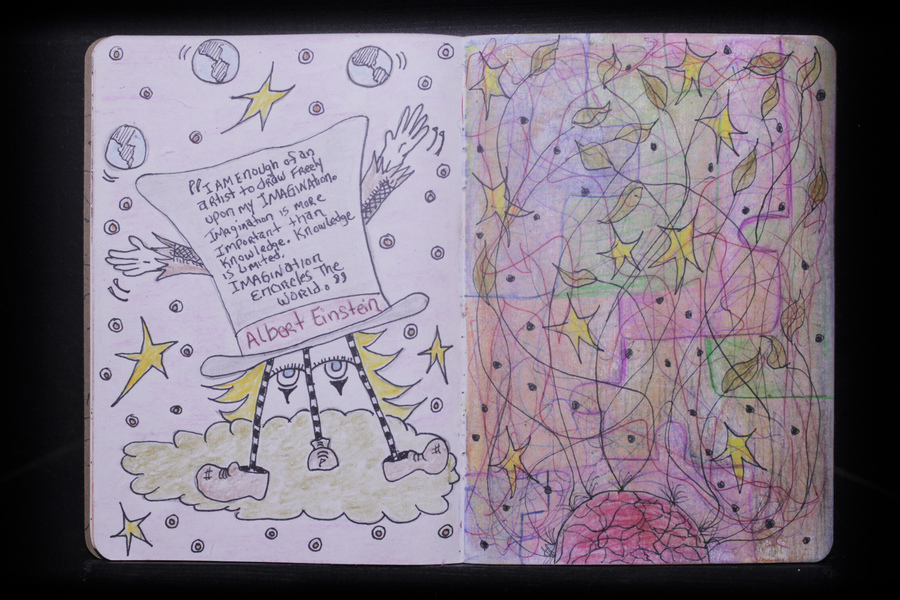 "I AM Enough of an
artist to draw Freely
upon my IMAGINATION.
Imagination is more
Important than
Knowledge. Knowledge
is Limited.
IMAGINATION
Encircles The
World."
Albert Einstein
#
?
#